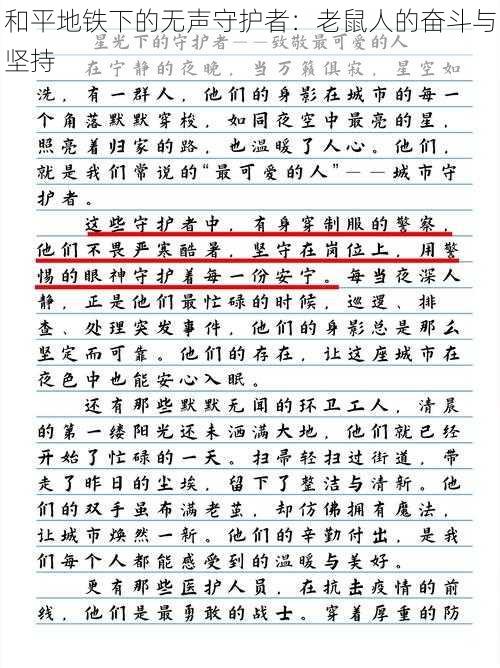 和平地铁下的无声守护者：老鼠人的奋斗与
坚持
星光下的守护者——致敬最可爱的人
在宁静的夜晚，当万籁俱寂，星空如
洗，有一群人，他们的身影在城市的每一
个角落默默穿梭，如同夜空中最亮的星，
照亮着归家的路，也温暖了人心。他们，
就是我们常说的“最可爱的人”——城市守
护者。
这些守护者中，有身穿制服的警察，
他们不畏严寒酷暑，坚守在岗位上，用警
惕的眼神守护着每一份安宁。每当夜深人
静，正是他们最忙碌的时候，巡逻、排
查、处理突发事件，他们的身影总是那么
坚定而可靠。他们的存在，让这座城市在
夜色中也能安心入眠。
还有那些默默无闻的环卫工人，清晨
的第一缕阳光还未洒满大地，他们就已经
开始了忙碌的一天。扫帚轻扫过街道，带
走了昨日的尘埃，留下了整洁与清新。他
们的双手虽布满老茧，却仿佛拥有魔法，
让城市焕然一新。他们的辛勤付出，是我
们每个人都能感受到的温暖与美好。
更有那些医护人员，在抗击疫情的前
线，他们是最勇敢的战士。穿着厚重的防